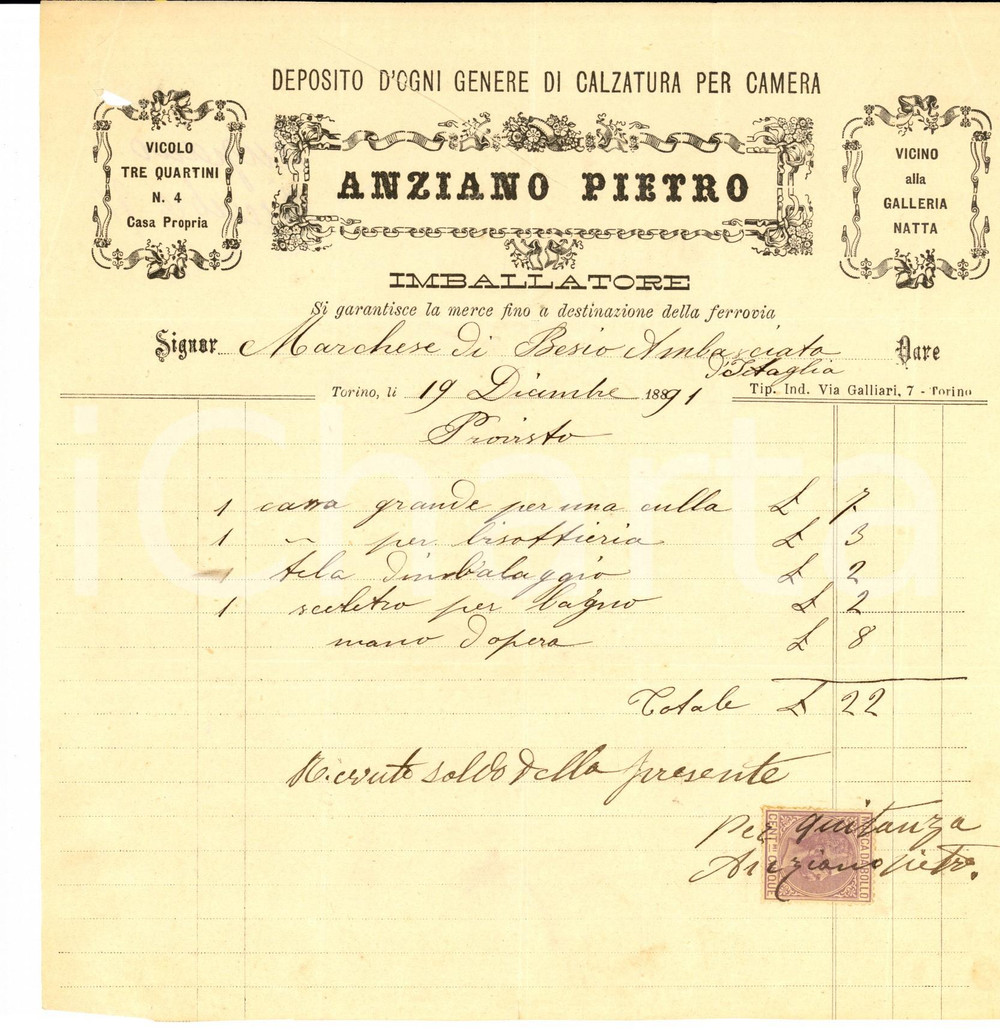 DEPOSITO D'OGNI GENERE DI CALZATURA PER CAMERA
VICOLO
TRE QUARTINI
N. 4
Casa Propria
ANZIANO PIETRO
VICINO
alla
GALLERIA
NATTA
IMBALLATORE
Si garantisce la merce fino a destinazione della ferrovia
Signor Marchese di Besio Ambasciata Dare
d'Itaglia
Torino, li 19 Dicembre 1891
Tip. Ind. Via Galliari, 7 - Torino
Provisto
1 cassa grande per una culla £ 7
1 " per bisottieria £ 3
1 tela dimbalaggio £ 2
1 sceletro per bagno £ 2
mano d'opera £ 8
Totale £ 22
Ricevuto saldo della presente
per quitanza
Anziano pietro.
MARCA DA BOLLO
CENT.MI CINQUE
iCharta